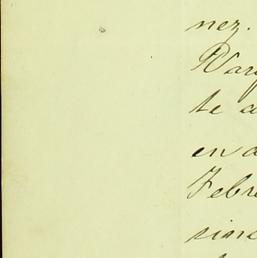 nez.
Var
te a
en a
Febre
sinc